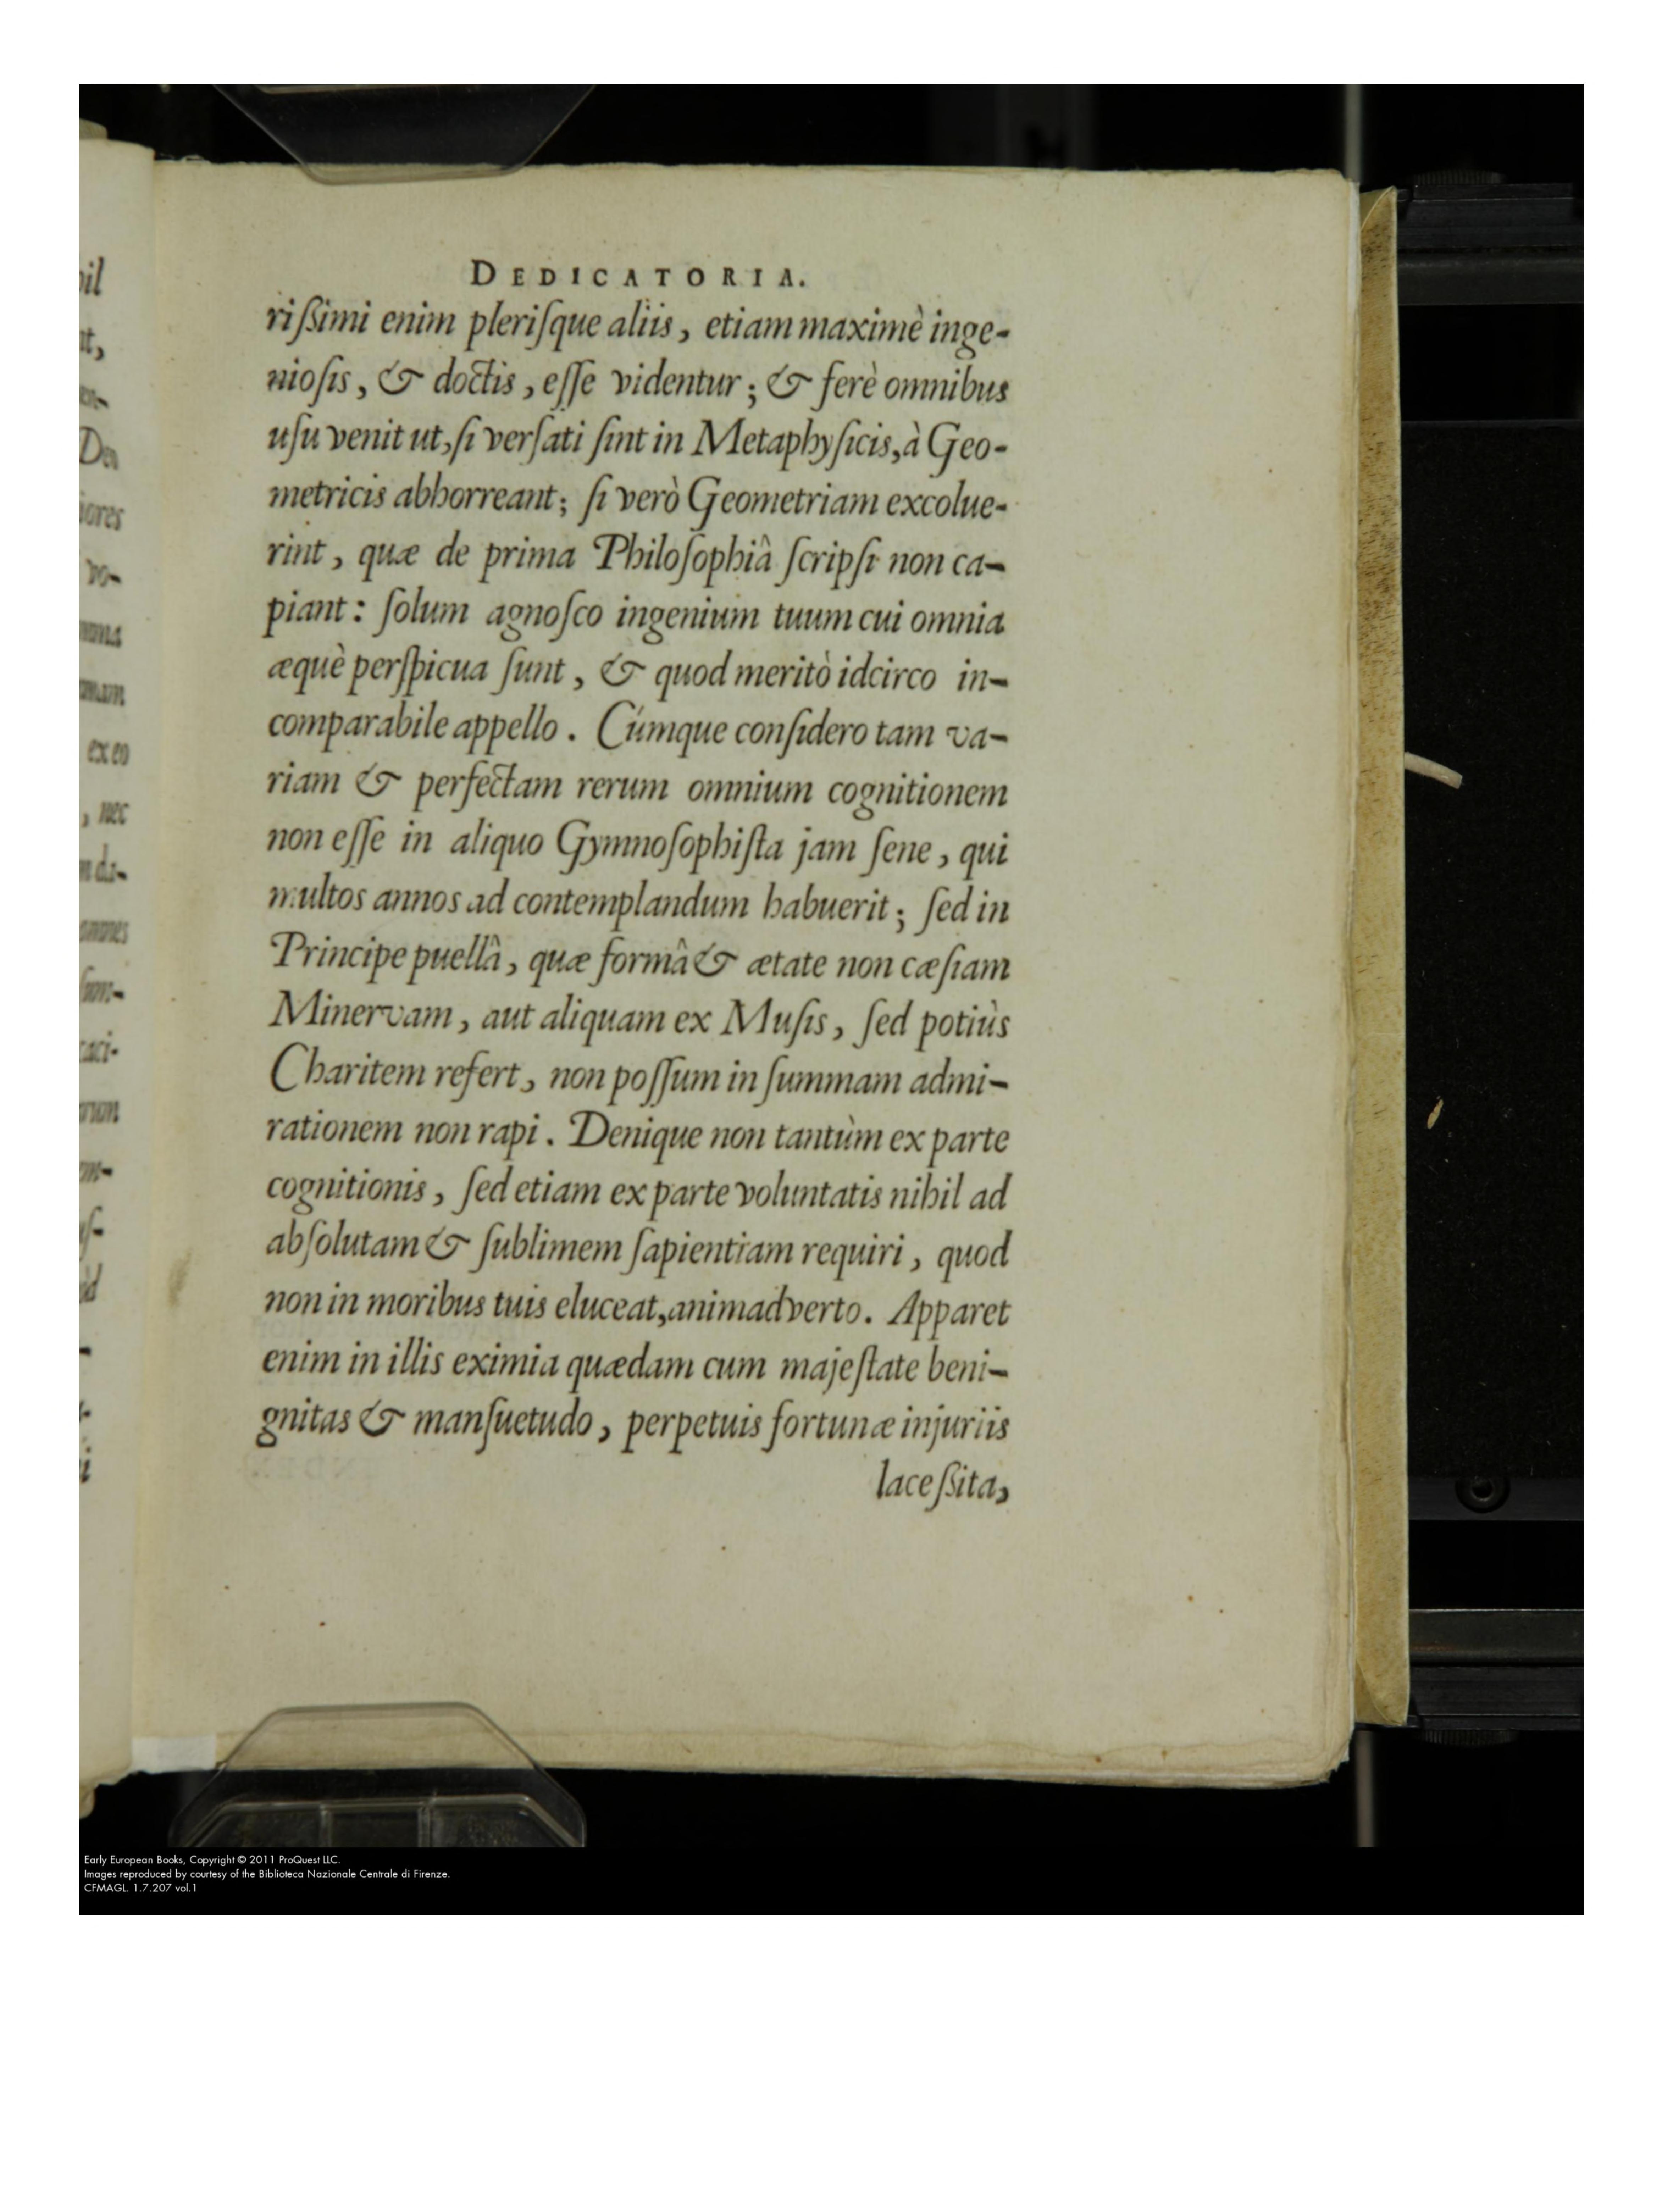 DEDICATORIA.
rißimi enim pleriſque aliis, etiam maximè inge-
nioſis, & doctis, eſſe videntur; & ferè omnibus
uſu venit ut, ſi verſati ſint in Metaphyſicis, à Geo-
metricis abhorreant; ſi verò Geometriam excolue-
rint, quæ de prima Philoſophiâ ſcripſi non ca-
piant: ſolum agnoſco ingenium tuum cui omnia
æquè perſpicua ſunt, & quod meritò idcirco in-
comparabile appello. Cúmque conſidero tam va-
riam & perfectam rerum omnium cognitionem
non eſſe in aliquo Gymnoſophiſta jam ſene, qui
multos annos ad contemplandum habuerit; ſed in
Principe puellâ, quæ formâ & ætate non cæſiam
Minervam, aut aliquam ex Muſis, ſed potiùs
Charitem refert, non poſſum in ſummam admi-
rationem non rapi. Denique non tantùm ex parte
cognitionis, ſed etiam ex parte voluntatis nihil ad
abſolutam & ſublimem ſapientiam requiri, quod
non in moribus tuis eluceat, animadverto. Apparet
enim in illis eximia quædam cum majeſtate beni-
gnitas & manſuetudo, perpetuis fortunæ injuriis
laceßita,
Early European Books, Copyright © 2011 ProQuest LLC.
Images reproduced by courtesy of the Biblioteca Nazionale Centrale di Firenze.
CFMAGL. 1.7.207 vol.1